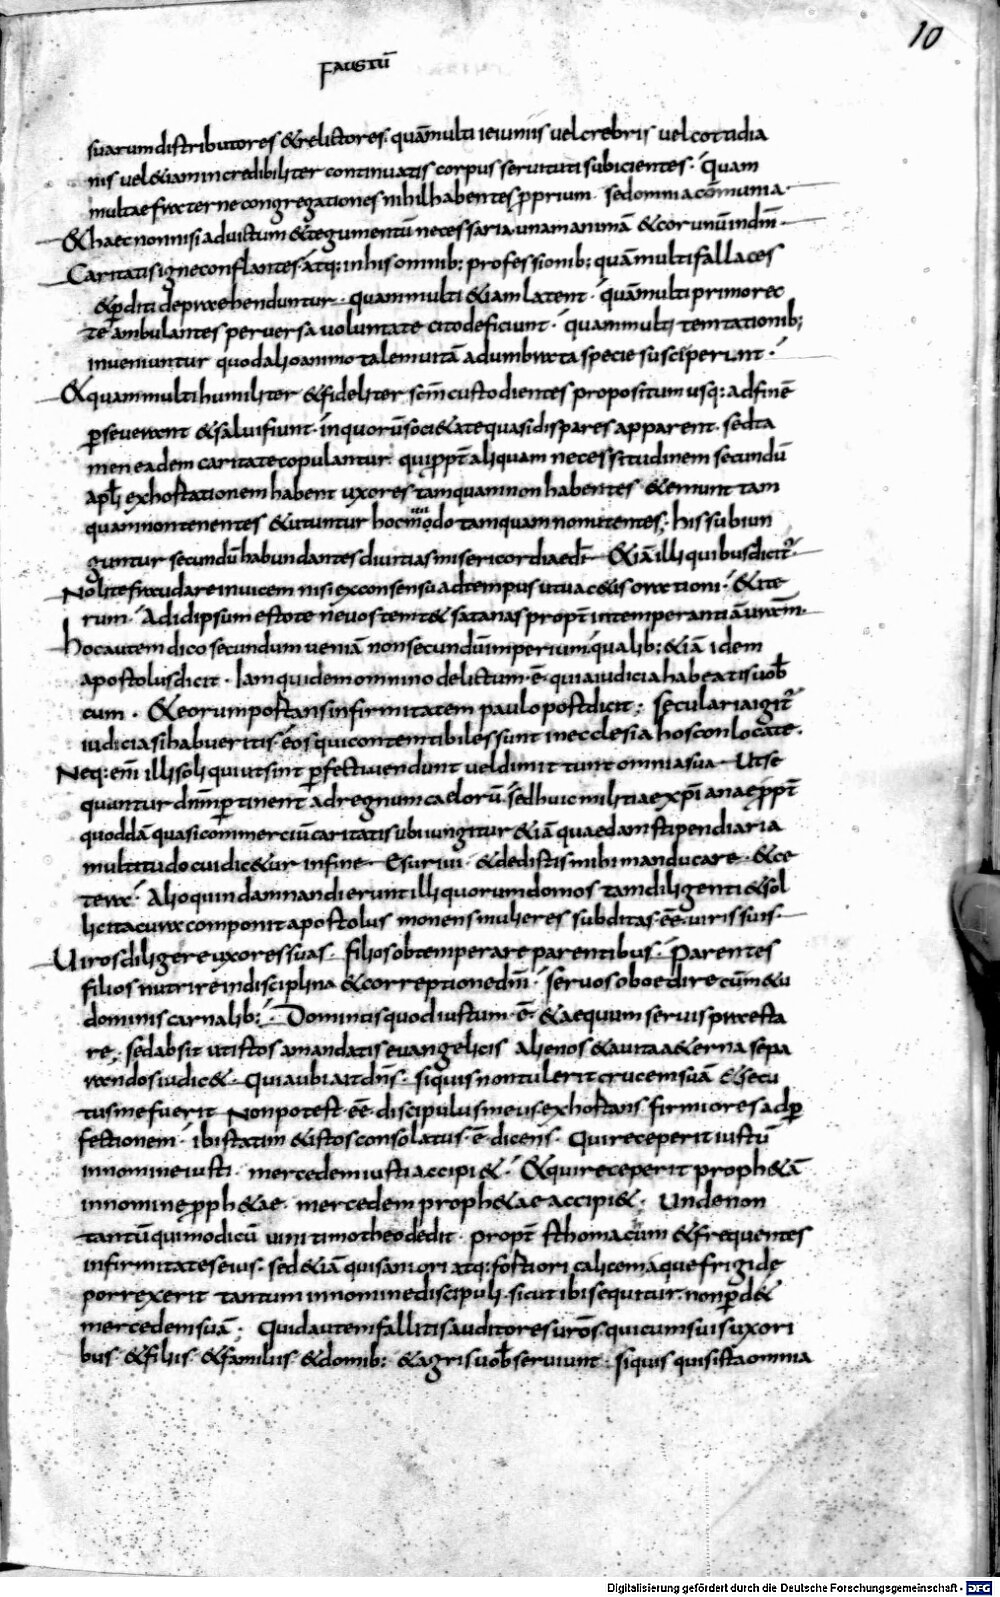 10
FAUSTŪ
suarum distributores & relictores. quā multi ieiuniis vel crebris vel cottidia
nis vel &iam incredibiliter continuatis corpus servituti subicientes. Quam
multae fraternae congregationes nihil habentes pprium. sed omnia cōmunia.
& haec non nisi ad victum & tegumentū necessaria. unam animā & cor unū in dm̄
Caritatis igne conflantes. atq: in his omnib: professionib: quā multi fallaces
& pditi deprehenduntur. quam multi &iam latent. quā multi primo rec
te ambulantes perversa voluntate cito deficiunt. quam multi temtationib;
inveniuntur quod alio animo talem vitā adumbrata specie susciperunt.
& quam multi humiliter & fideliter scm̄ custodientes propositum usq: ad finē
pseverant & salvi fiunt. in quorū soci&ate quasi dispares apparent. sed ta
men eadem caritate copulantur. qui ppt̄ aliquam necessitudinem secundū
apl̄i exhortationem habent uxores tamquam non habentes & emunt tam
quam non tenentes & utuntur hoc mundo tamquam non utentes. his subiun
guntur secundū habundantes divitias misericordiae dī &iā illi quibus dicit̄.
Nolite fraudare invicem nisi ex consensu ad tempus ut vac&is orationi. & ite
rum. Ad id ipsum estote ne vos temt& satanas propt̄ intemperantiā vram̄.
hoc autem dico secundum veniā non secundū imperium. qualib: &iā idem
apostolus dicit. Iam quidem omnino delictum. ē. quia iudicia habeatis vob̄
cum. & eorum portans infirmitatem paulo post dicit; secularia igit̄
iudicia si habueritis. eos qui contemtibiles sunt in ecclesia hos conlocate.
Neq: em̄ illi soli qui ut sint pfecti vendunt vel dimittunt omnia sua Ut se
quantur dnm̄ ptinent ad regnum caelorū. sed huic militiae xp̄iana ppt̄
quoddā quasi commerciū caritatis subiungitur &iā quaedam stipendiaria
multitudo cui dic&ur in fine. Esurivi & dedistis mihi manducare. & ce
tera. Alioquin damnandi erunt illi quorum domos tam diligenti & sol
licita cura componit apostolus monens mulieres subditas. eē viris suis.
Viros diligere uxores suas. filios obtemperare parentibus. Parentes
filios nutrire in disciplina & correptione dm̄. servos oboedire cūm &u
dominis carnalib:. Dominis quod iustum. ē. & aequum servis praesta
re;. sed absit ut istos a mandatis evangelicis alienos & a vita a&erna sepa
randos iudic&. Quia ubi ait dns̄. si quis non tulerit crucem suā & secu
tus me fuerit Non potest. eē. discipulus meus. exhortans firmiores ad p
fectionem. ibi statim & istos consolatus. ē. dicens. Qui receperit iustū
in nomine iusti. mercedem iusti accipi&. & qui receperit proph&ā
in nomine pph&ae. mercedem proph&ae accipi&. Unde non
tantū qui modicū vini timotheo dedit. propt̄ sthomacum & frequentes
infirmitates eius. sed &iā qui saniori atq: fortiori calicem aquae frigidę
porrexerit tantum in nomine discipuli. sicut ibi sequitur. non pd&
mercedem suā; Quid autem fallitis auditores vrōs. qui cum suis uxori
bus & filiis & familiis & domib: & agris vob̄ serviunt. si quisquis ista omnia
Digitalisierung gefördert durch die Deutsche Forschungsgemeinschaft - DFG